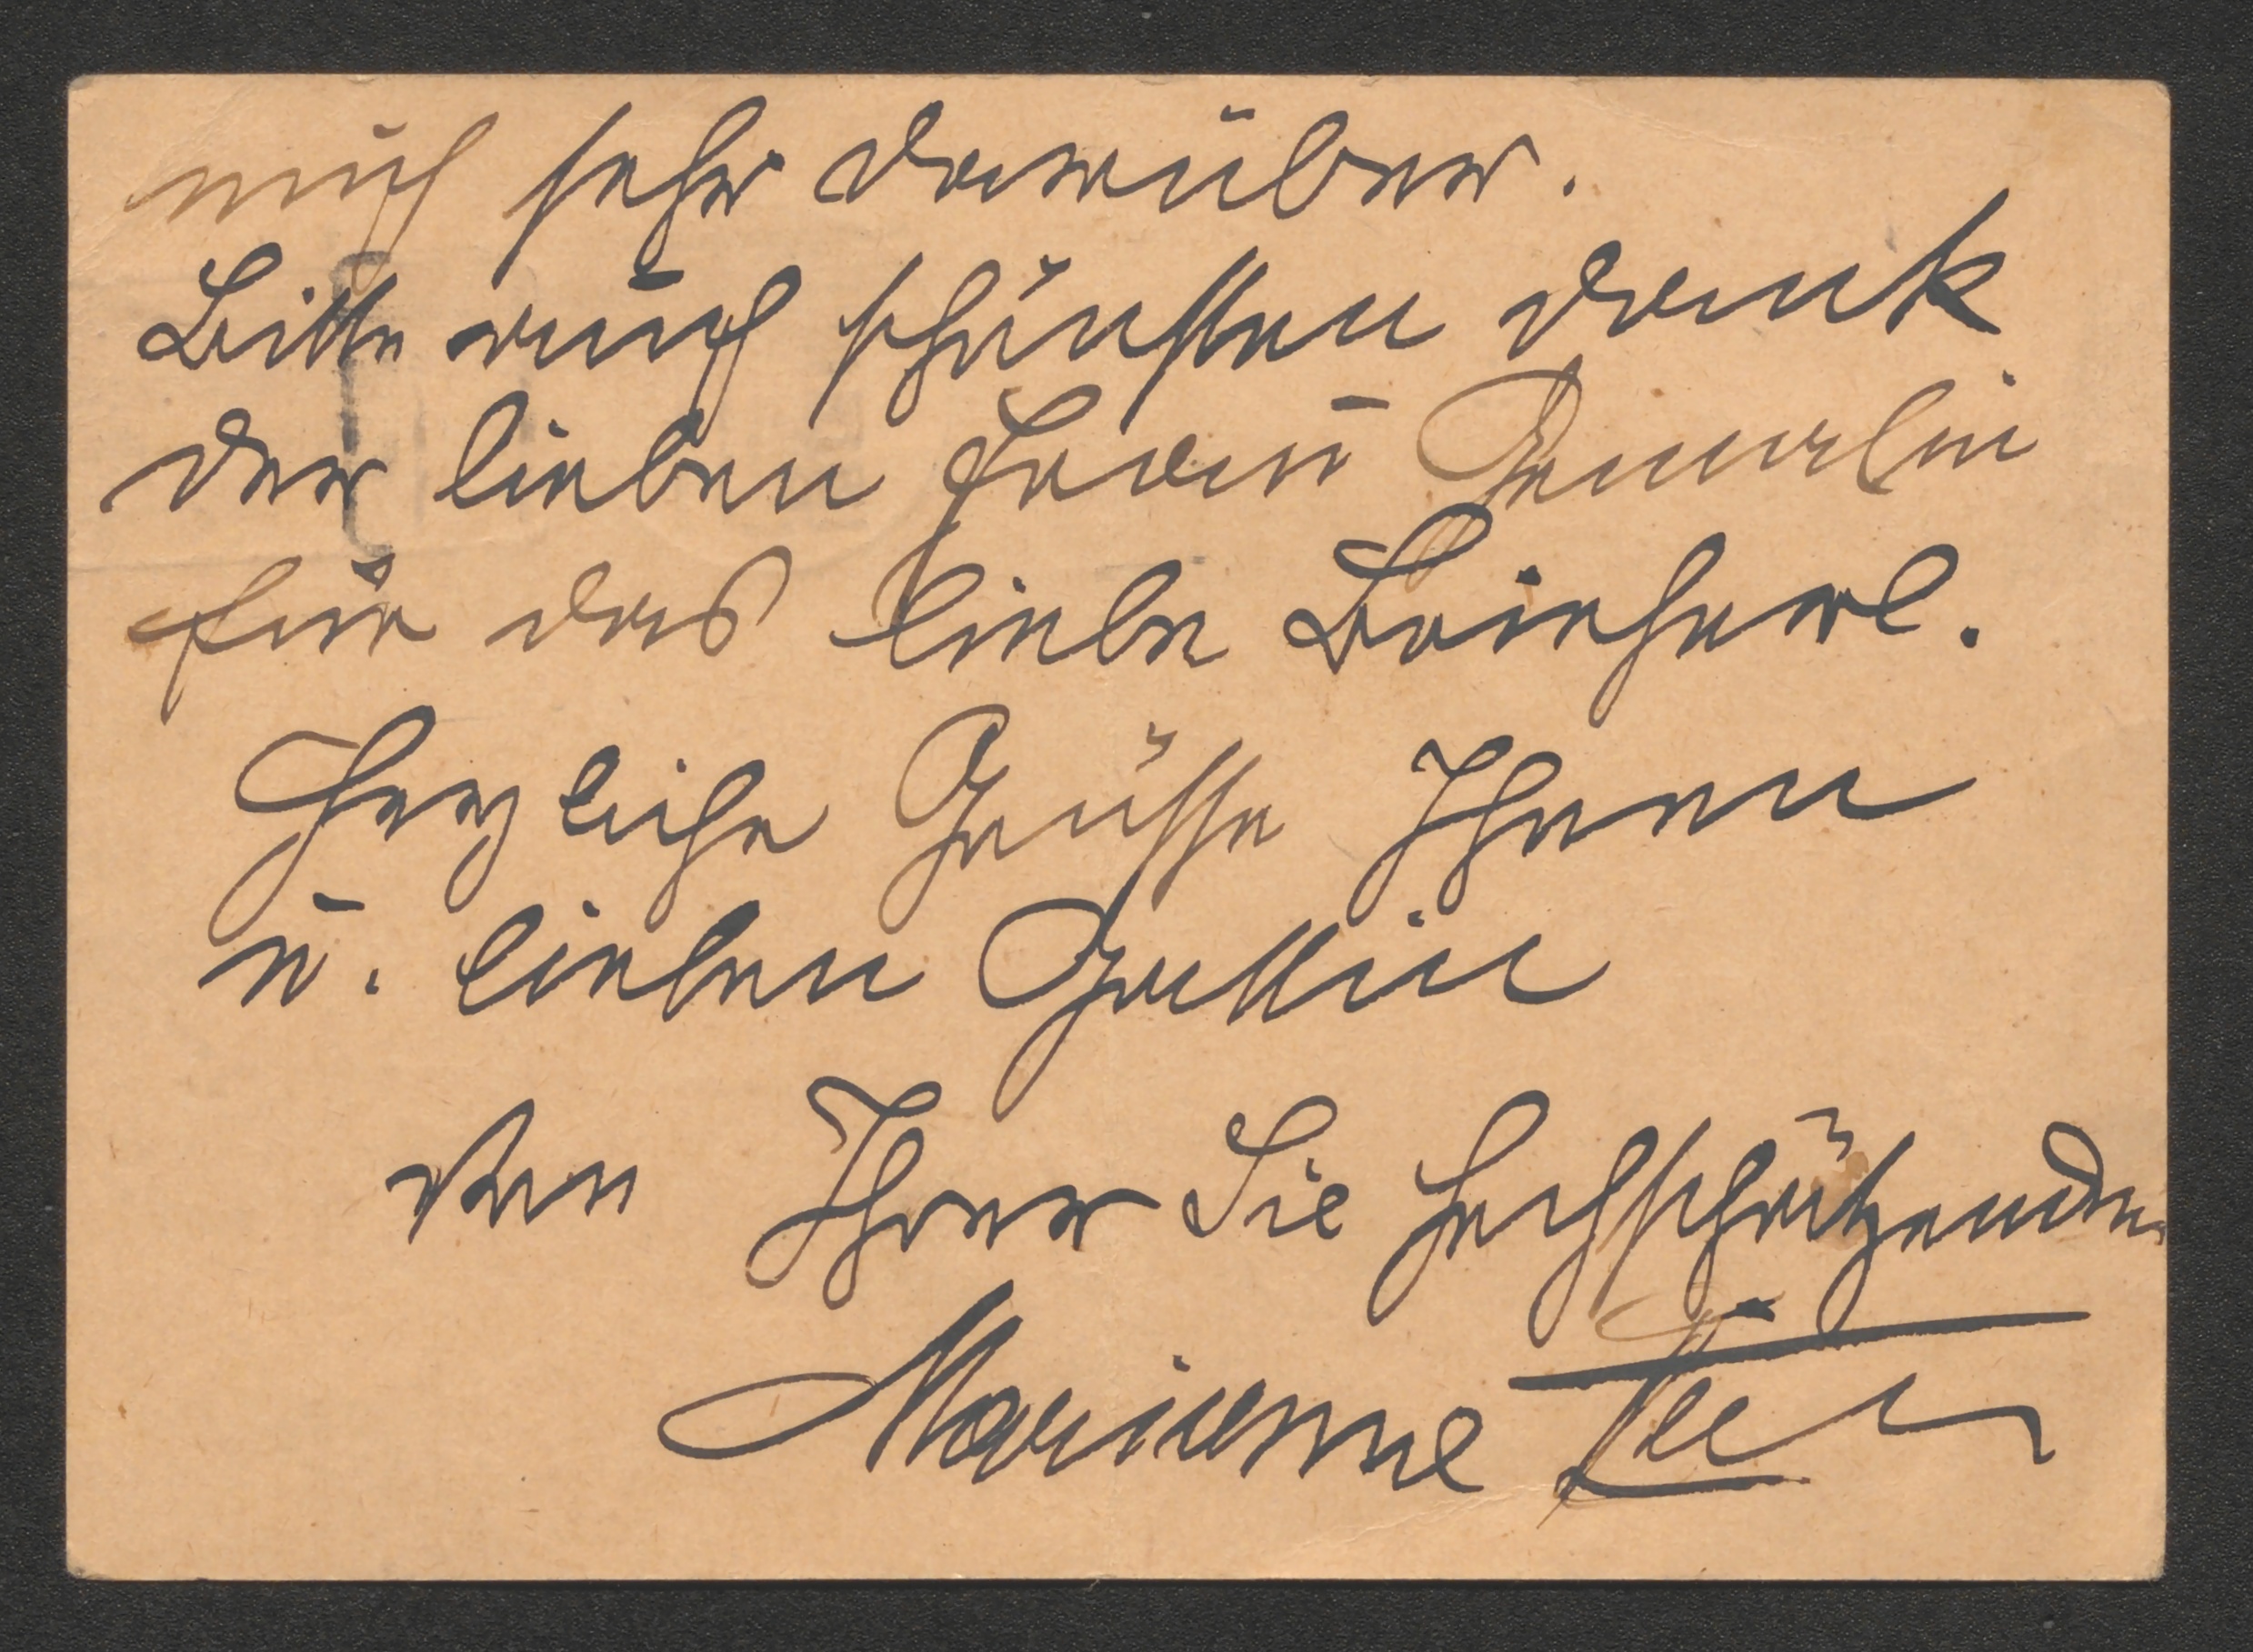 mich sehr darüber.
Bitte auch schönsten Dank
der lieben Frau Gemahlin
für das liebe Brieferl.
Herzliche Grüsse Ihnen
u. lieben Gattin
von Ihrer Sie hochschätzenden
Marianne